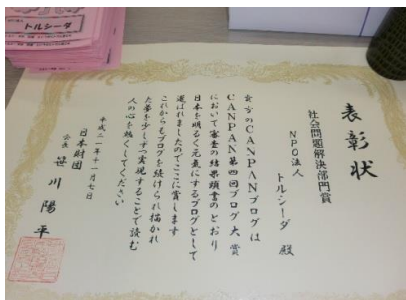 表彰状
社会問題解決部門賞
NPO法人
トルシーダ 殿
貴方のCANPANブログは
CANPAN第四回ブログ大賞
において審査の結果頭書のとおり
日本を明るく元気にするブログとして
選ばれましたのでここに賞します
これからもブログを続けられ描かれ
た夢を少しずつ実現することで読む
人の心を熱くしてください
平成二一年十一月七日
日本財団
会長 笹川陽平
トルシーダ